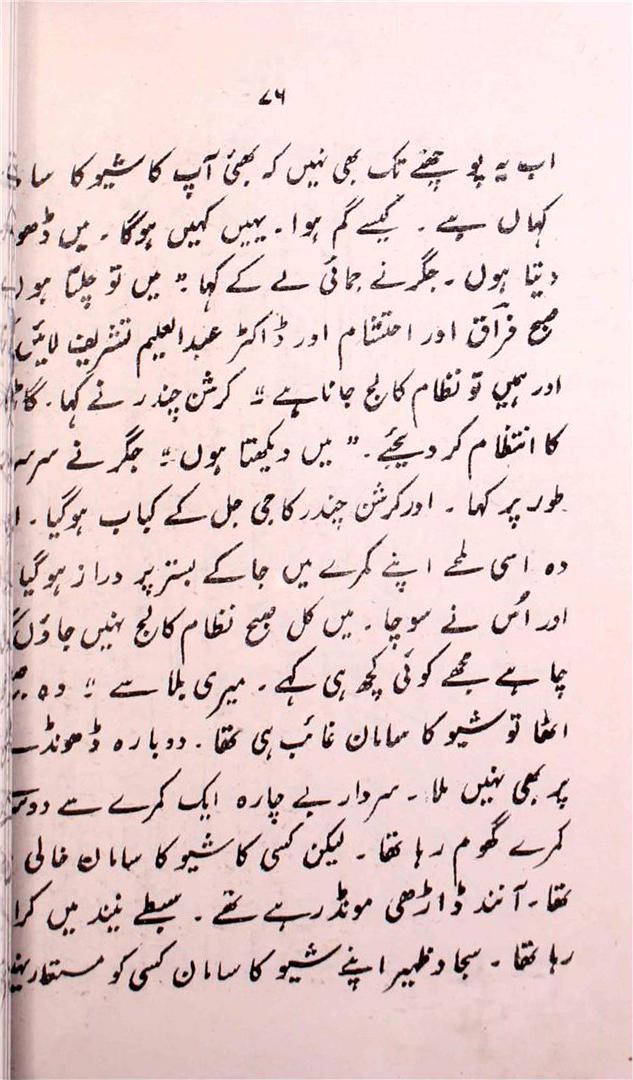 ۷۶
اب یہ پوچھنے تک بھی نہیں کہ بھئی آپ کا شیو کا
کہاں ہے۔ کیسے گم ہوا۔ یہیں کہیں ہوگا۔ میں
دیتا ہوں۔ جگر نے جمائی لے کے کہا ״ میں تو چلتا ہوں
صبح فراقؔ اور احتشام اور ڈاکٹر عبدالعلیم تشریف لائیں
اور ہمیں تو نظام کالج جانا ہے ״ کرشن چندر نے کہا۔
کا انتظام کر دیجئے۔ ״ میں دیکھتا ہوں ״ جگر نے
طور پر کہا۔ اور کرشن چندر کا جی جل کے کباب ہوگیا۔
وہ اسی لمحے اپنے کمرے میں جا کے بستر پر دراز ہوگیا
اور اُس نے سوچا۔ میں کل صبح نظام کالج نہیں جاؤں
چاہے مجھے کوئی کچھ ہی کہے۔ میری بلا سے ״ وہ
اٹھا تو شیو کا سامان غائب ہی تھا۔ دوبارہ ڈھونڈنے
پر بھی نہیں ملا۔ سردار بے چارہ ایک کمرے سے
کمرے گھوم رہا تھا۔ لیکن کسی کا شیو کا سامان خالی
تھا۔ آنند ڈاڑھی مونڈ رہے تھے۔ سبطے نیند میں
رہا تھا۔ سجاد ظہیر اپنے شیو کا سامان کسی کو مستعار